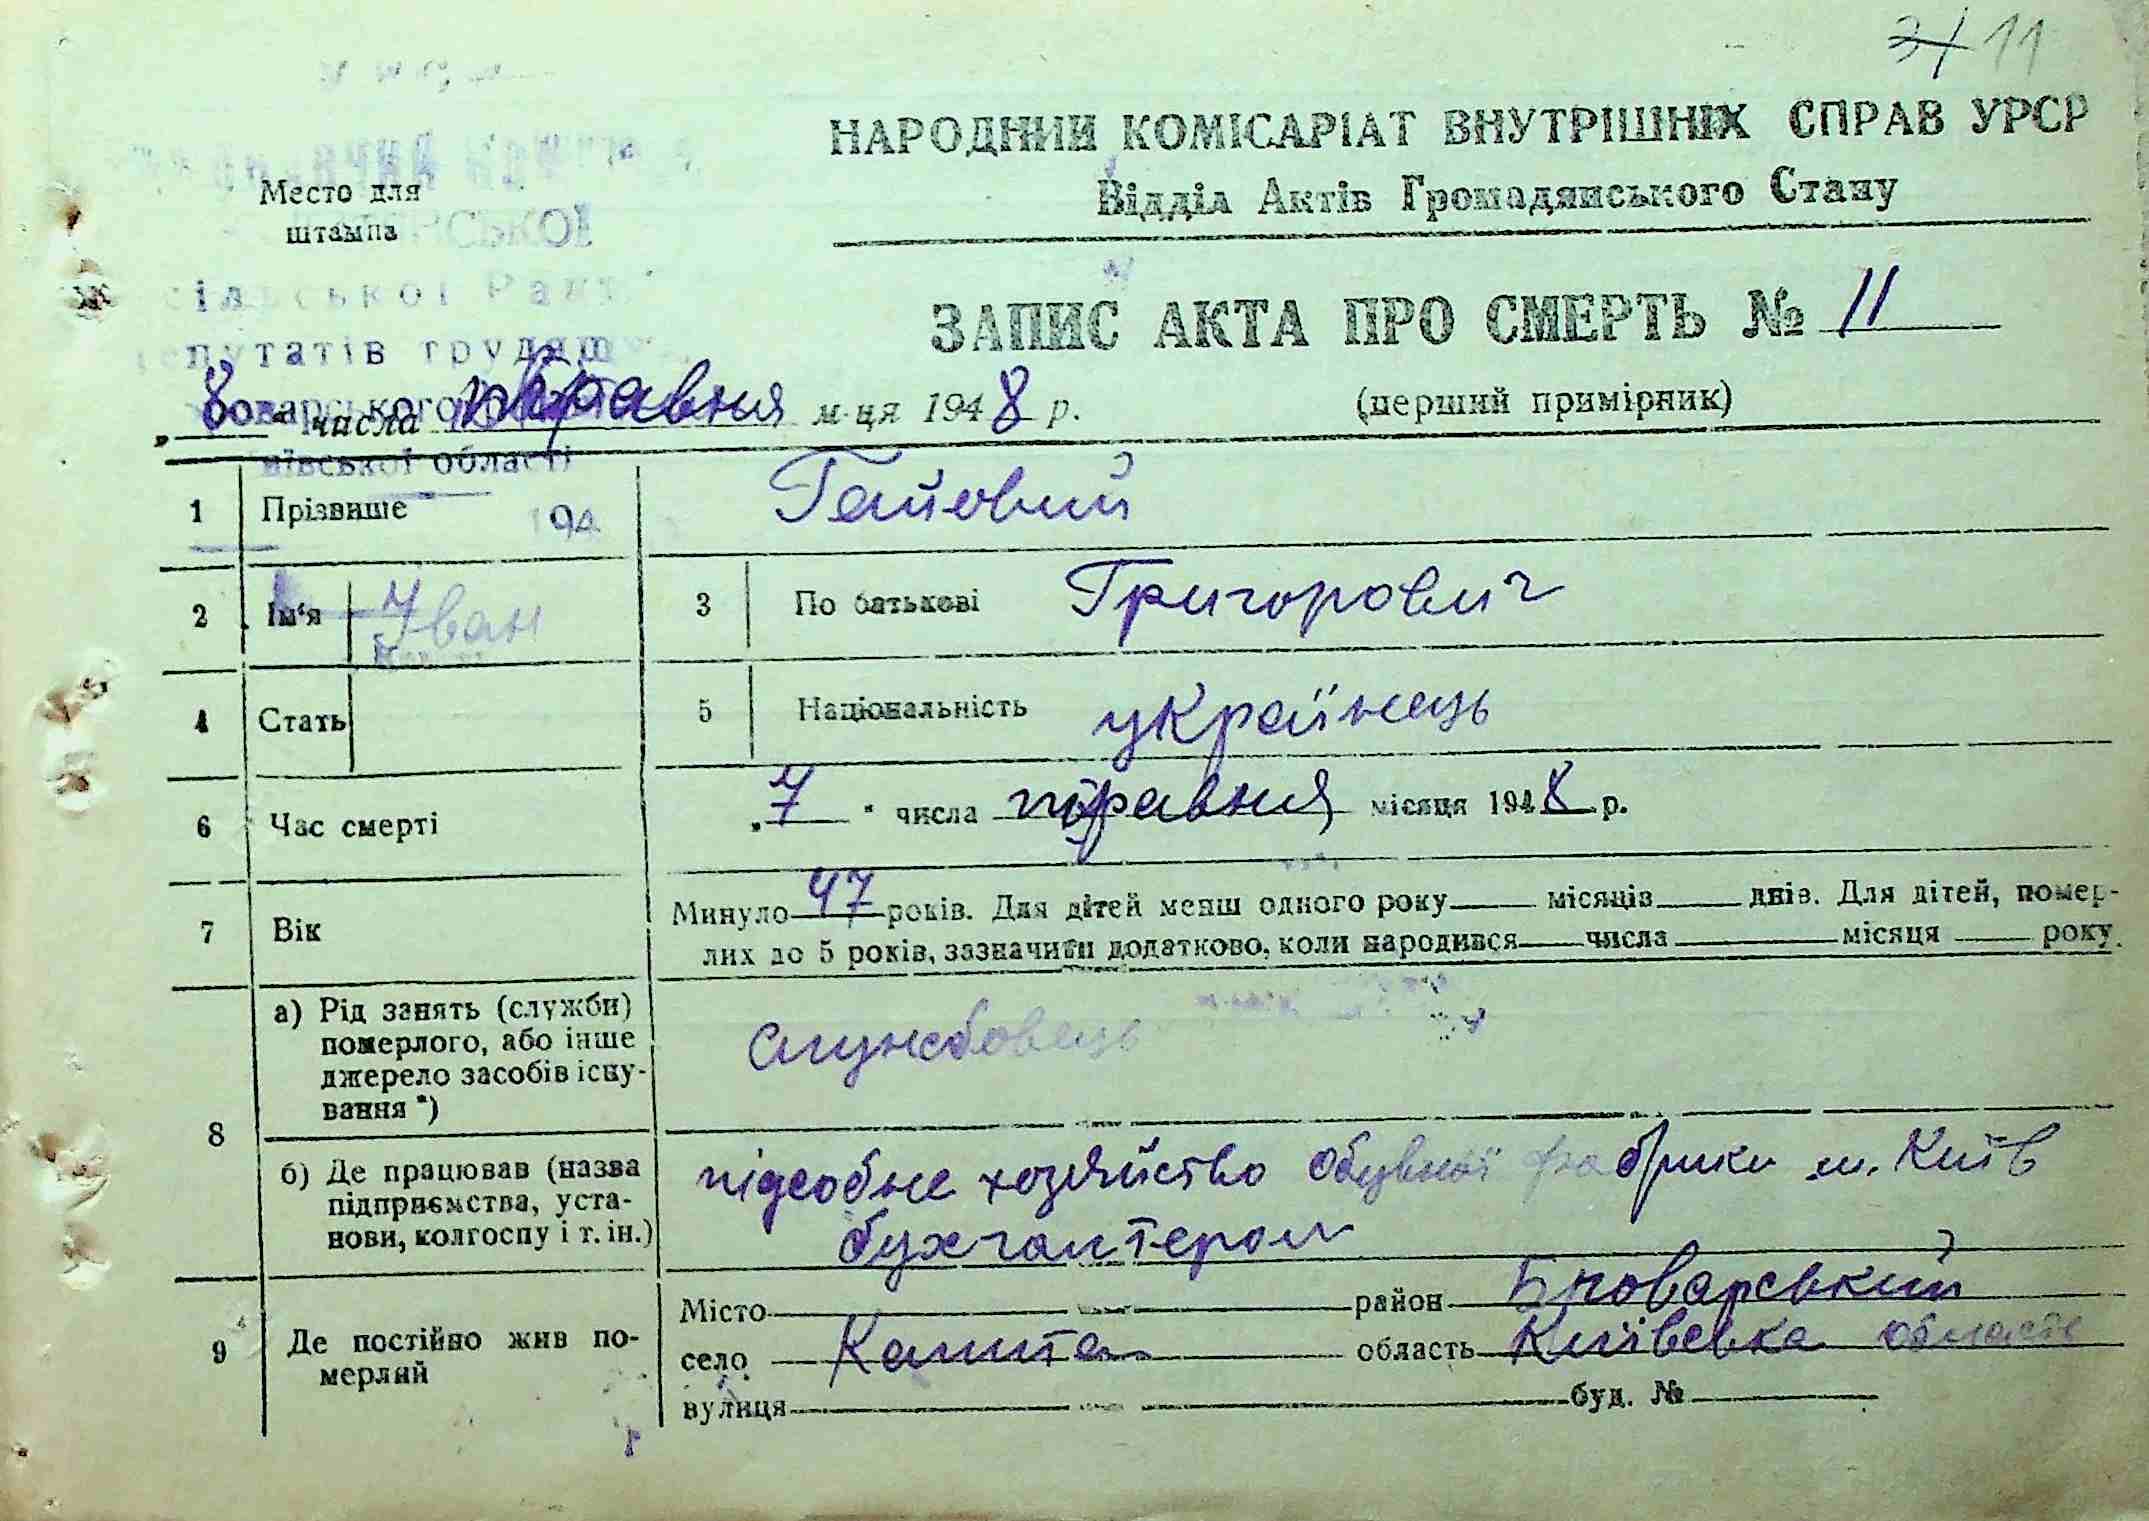 11
НАРОДНИЙ КОМІСАРІАТ ВНУТРІШНІХ СПРАВ УРСР
Відділ Актів Громадянського Стану
Место для
штампа
сільської Ради
депутатів трудящих
ЗАПИС АКТА ПРО СМЕРТЬ № 11
(перший примірник)
„8“ числа травня м-ця 1948 р.
області
194
1 Прізвище Гайовий
2 Ім‘я Іван 3 По батькові Григорович
4 Стать 5 Національність українець
6 Час смерті „7“ числа травня місяця 1948 р.
7 Вік Минуло 47 років. Для дітей менш одного року місяців днів. Для дітей, помер-
лих до 5 років, зазначити додатково, коли народився числа місяця року.
8 а) Рід занять (служби)
померлого, або інше
джерело засобів існу-
вання *)
службовець
б) Де працював (назва
підприємства, уста-
нови, колгоспу і т. ін.)
підсобне хозяйство обувної фабрики м. Київ
бухгалтером
9 Де постійно жив по-
мерлий
Місто район Броварський
село Калита область Київська область
вулиця буд. №